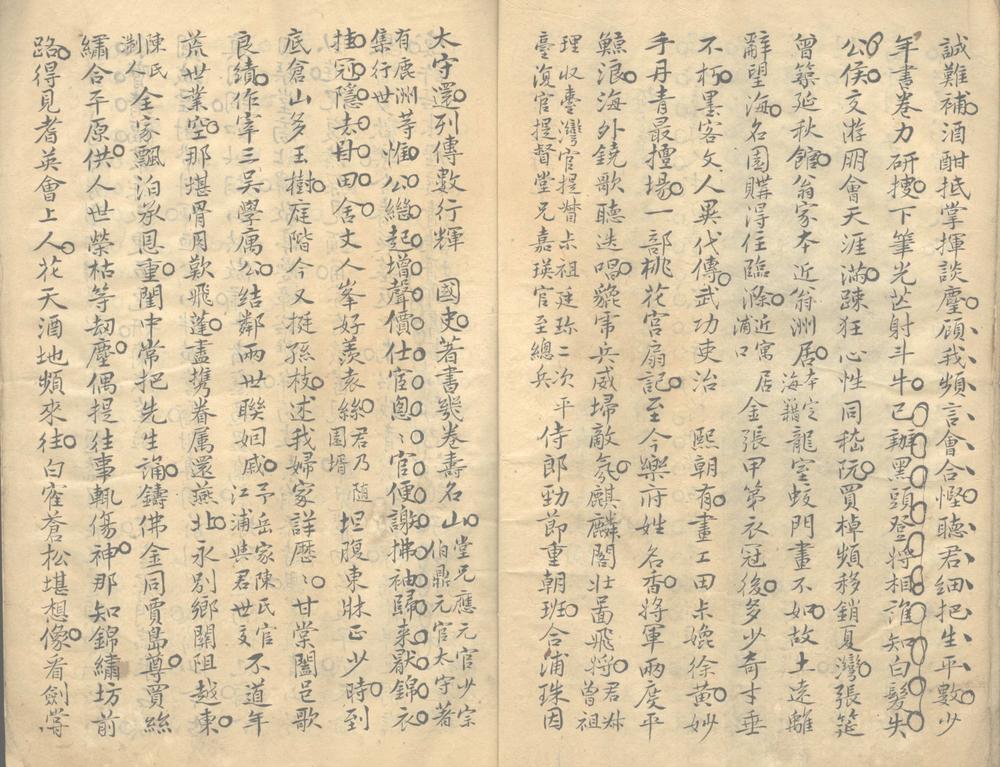 誠難補酒酣抵掌揮談麈顧我頻言會合慳聽君細把生平數少
年書卷力研搜下筆光芒射斗牛已辦黑頭登將相誰知白髮失
公侯文游朋會天涯滿踈狂心性同嵇阮買棹頻移銷夏灣張筵
曾築延秋館翁家本近翁洲居本定海籍龍宮蛟門畫不如故土遠離
辭望海名園購得住臨滁近寓居浦口金張甲第衣冠後多少奇才垂
不朽墨客文人異代傳武功吏治 熙朝有畫工田尗嬎徐黃妙
手丹青最擅場一部桃花宮扇記至今樂府姓名香將軍兩度平
鯨浪海外鐃歌聽迭唱貔霈兵威埽敵氛麒麟閣壯啚飛將君叔曾祖
理收臺灣官提督尗祖廷珎二次平臺復官提督堂兄嘉瑛官至總兵侍郎勁節重朝班合浦珠因
太守還列傳數行輝 國史著書幾卷壽名山堂兄應元官少宗伯鼎元官太守著
有鹿洲等集行世惟公繼起增聲價仕宦悤〻官便謝拂袖歸来猒錦衣
挂冠隱去甘田舍丈人峯好羨袁絲君乃隨園壻坦腹東牀正少時到
底倉山多玉樹庭階今又挺孫枝述我婦家詳歷〻甘棠闔邑歌
良績作宰三吳學寓公結鄰兩世聯姻戚予岳家陳氏官江浦與君世交不道年
荒世業空那堪骨肉歎飛蓬盡攜眷属還燕北永別鄉關阻越東
陳氏淛人全家飄泊承恩重閨中常把先生誦鑄佛金同賈島尊買絲
繡合平原供人世榮枯等刧塵偶提往事輒傷神那知錦繡坊前
路得見耆英會上人花天酒地頻來往白雀蒼松堪想像看劍嘗